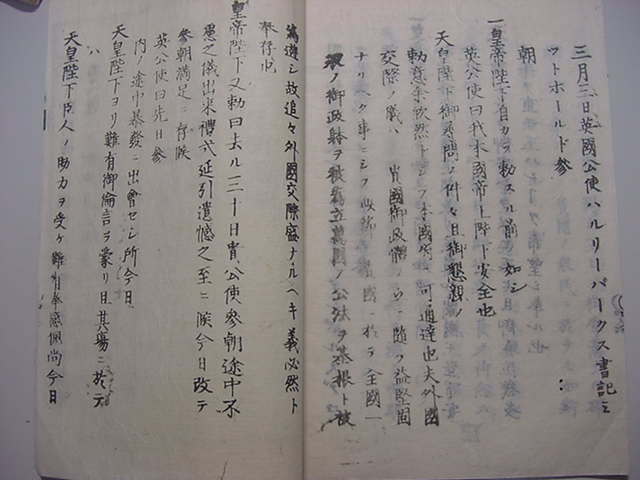 三月三日英國公使ハルリーパークス書記ミ
ツトホールド参
朝
一皇帝陛下自カラ勅スル前ノ如シ
英公使曰我本國帝王陛下安全也
天皇陛下御尋問ノ件々且御懇親ノ
勅意余欣然トシテ本國政府ニ可通達也夫外國
交際ノ儀ハ貴國御政體ノ立ニ随ツ益堅固
ナリヘク事ニシテ 貴國 ヲ全國一
ノ御政躰ヲ被為立萬國ノ公法ヲ基根ト被
為遊シ故追々外國交際盛ナルヘキ義必然ト
奉存候
皇帝陛下又勅曰去ル三十日貴公使参朝途中不
慮之儀出来禮式延引遺憾之至ニ候今日改テ
参朝満足ニ存候
英公使曰先日参
内ノ途中暴發ニ出會セシ所今日
天皇陛下ヨリ難有御倫言ヲ蒙リ且其場ニ於テ
ハ
天皇陛下臣人ノ助力ヲ受ケ難有奉感佩尚今日